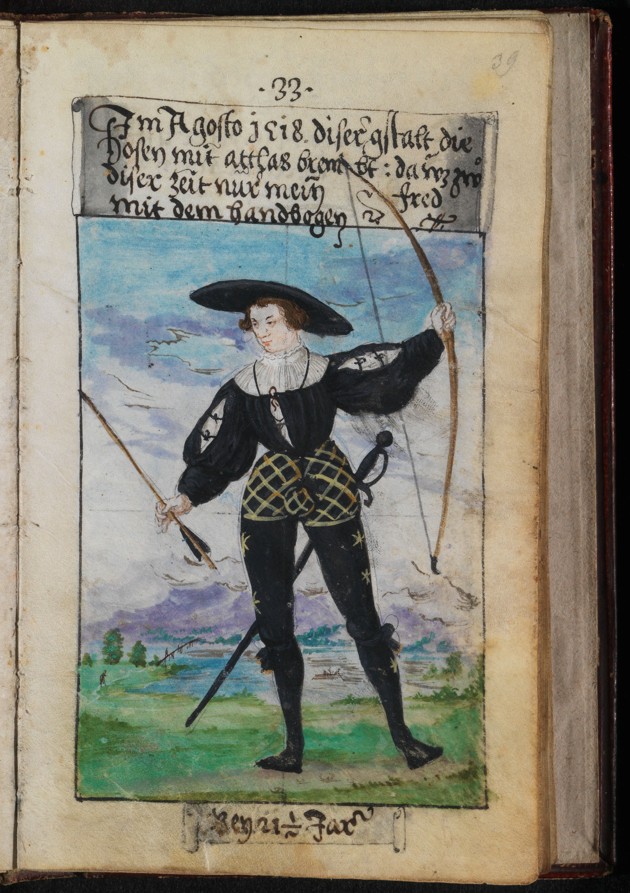 39
·33·
Im Agosto 1518. diser gstalt die
Hosen mit atthas brem bt: da wz zů
diser zeit nur mein fred
mit dem handbogen
Bey 21 1/2 Jar